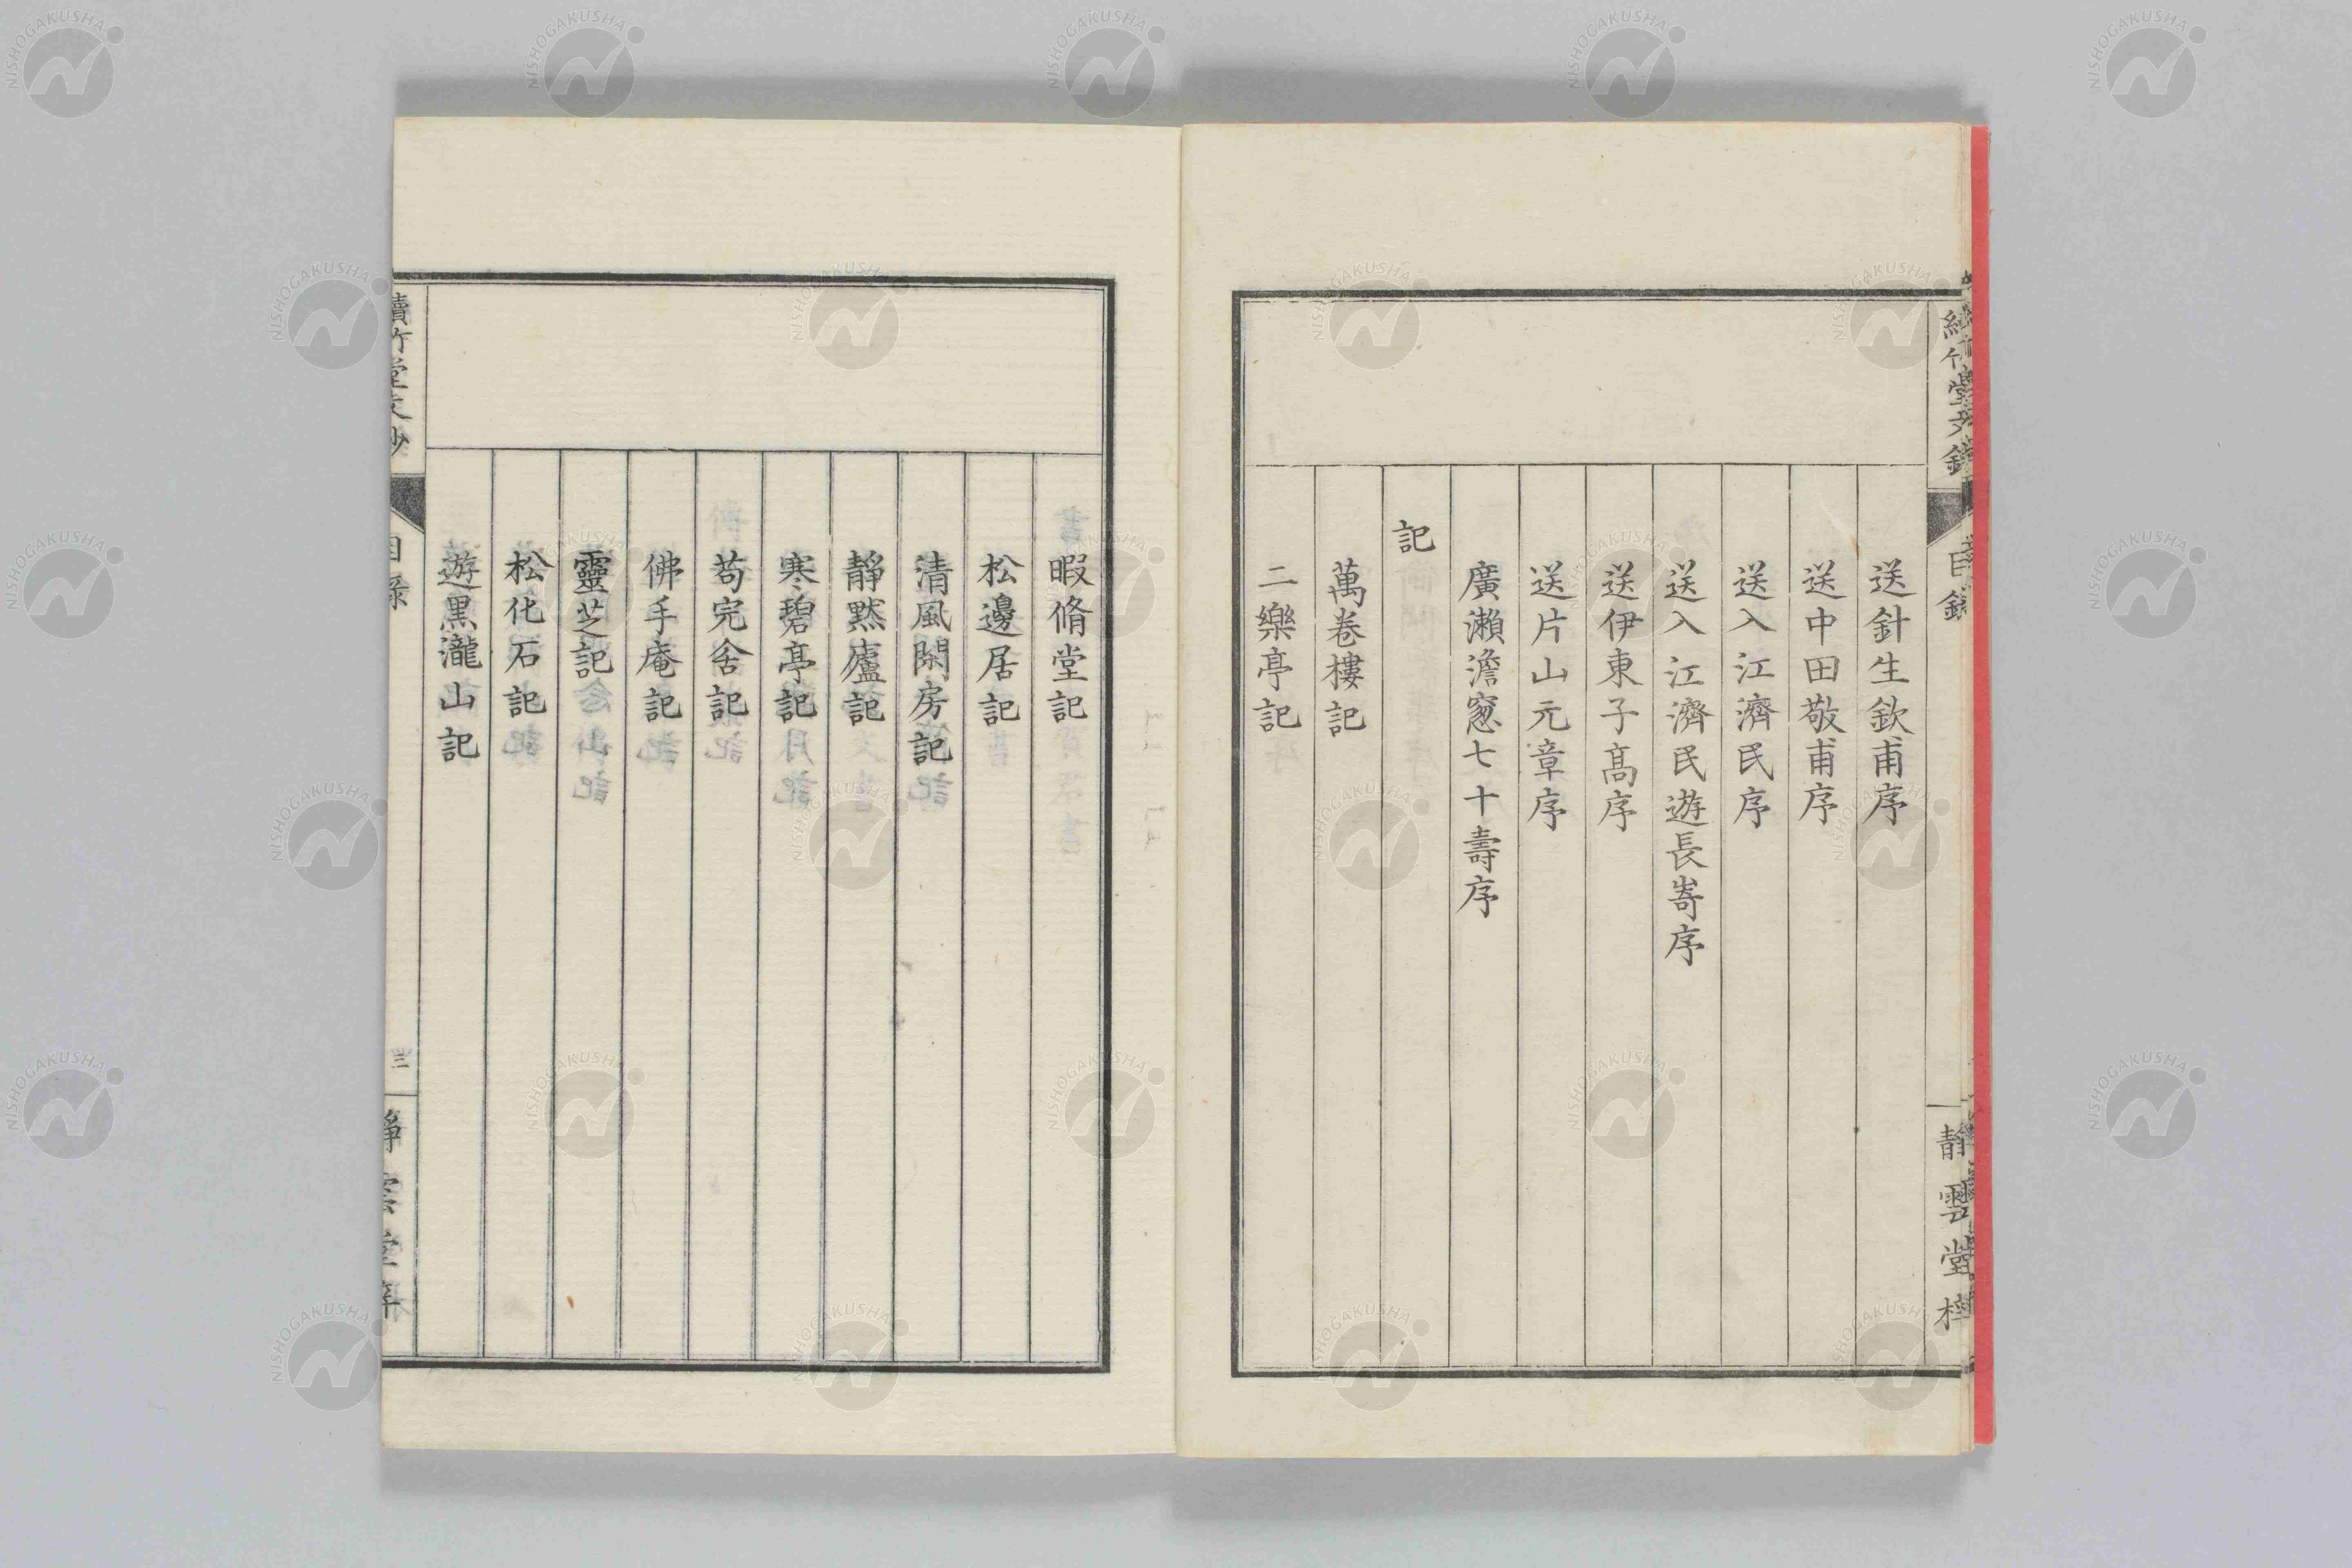 送針生欽甫序
送中田敬甫序
送入江濟民序
送入江濟民遊長嵜序
送伊東子髙序
送片山元章序
廣瀨澹窓七十壽序
記
萬卷樓記
二樂亭記
暇脩堂記
松邊居記
清風閑房記
靜黙廬記
寒碧亭記
苟完舍記
佛手庵記
靈芝記
松化石記
遊黒瀧山記
續竹堂文鈔
目錄
三
靜雲堂
NISHOGAKUSHA